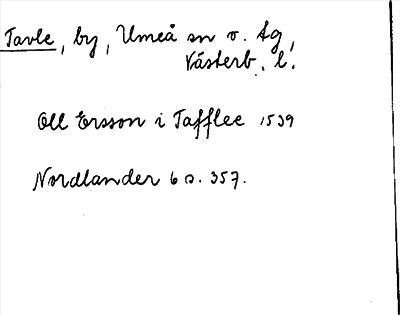 Tavle, by, Umeå sn o. tg,
Västerb. l.
Oll Ersson i Tafflee 1539
Nordlander 6 s. 357.